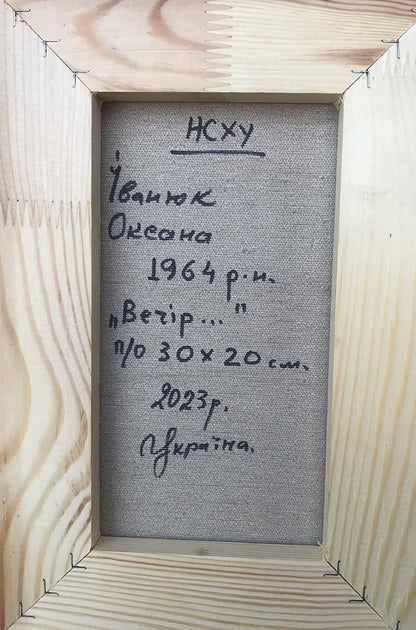 НСХУ
Іванюк
Оксана
1964 р.н.
„Вечір..."
п/о 30 х 20 см.
2023р.
Україна.